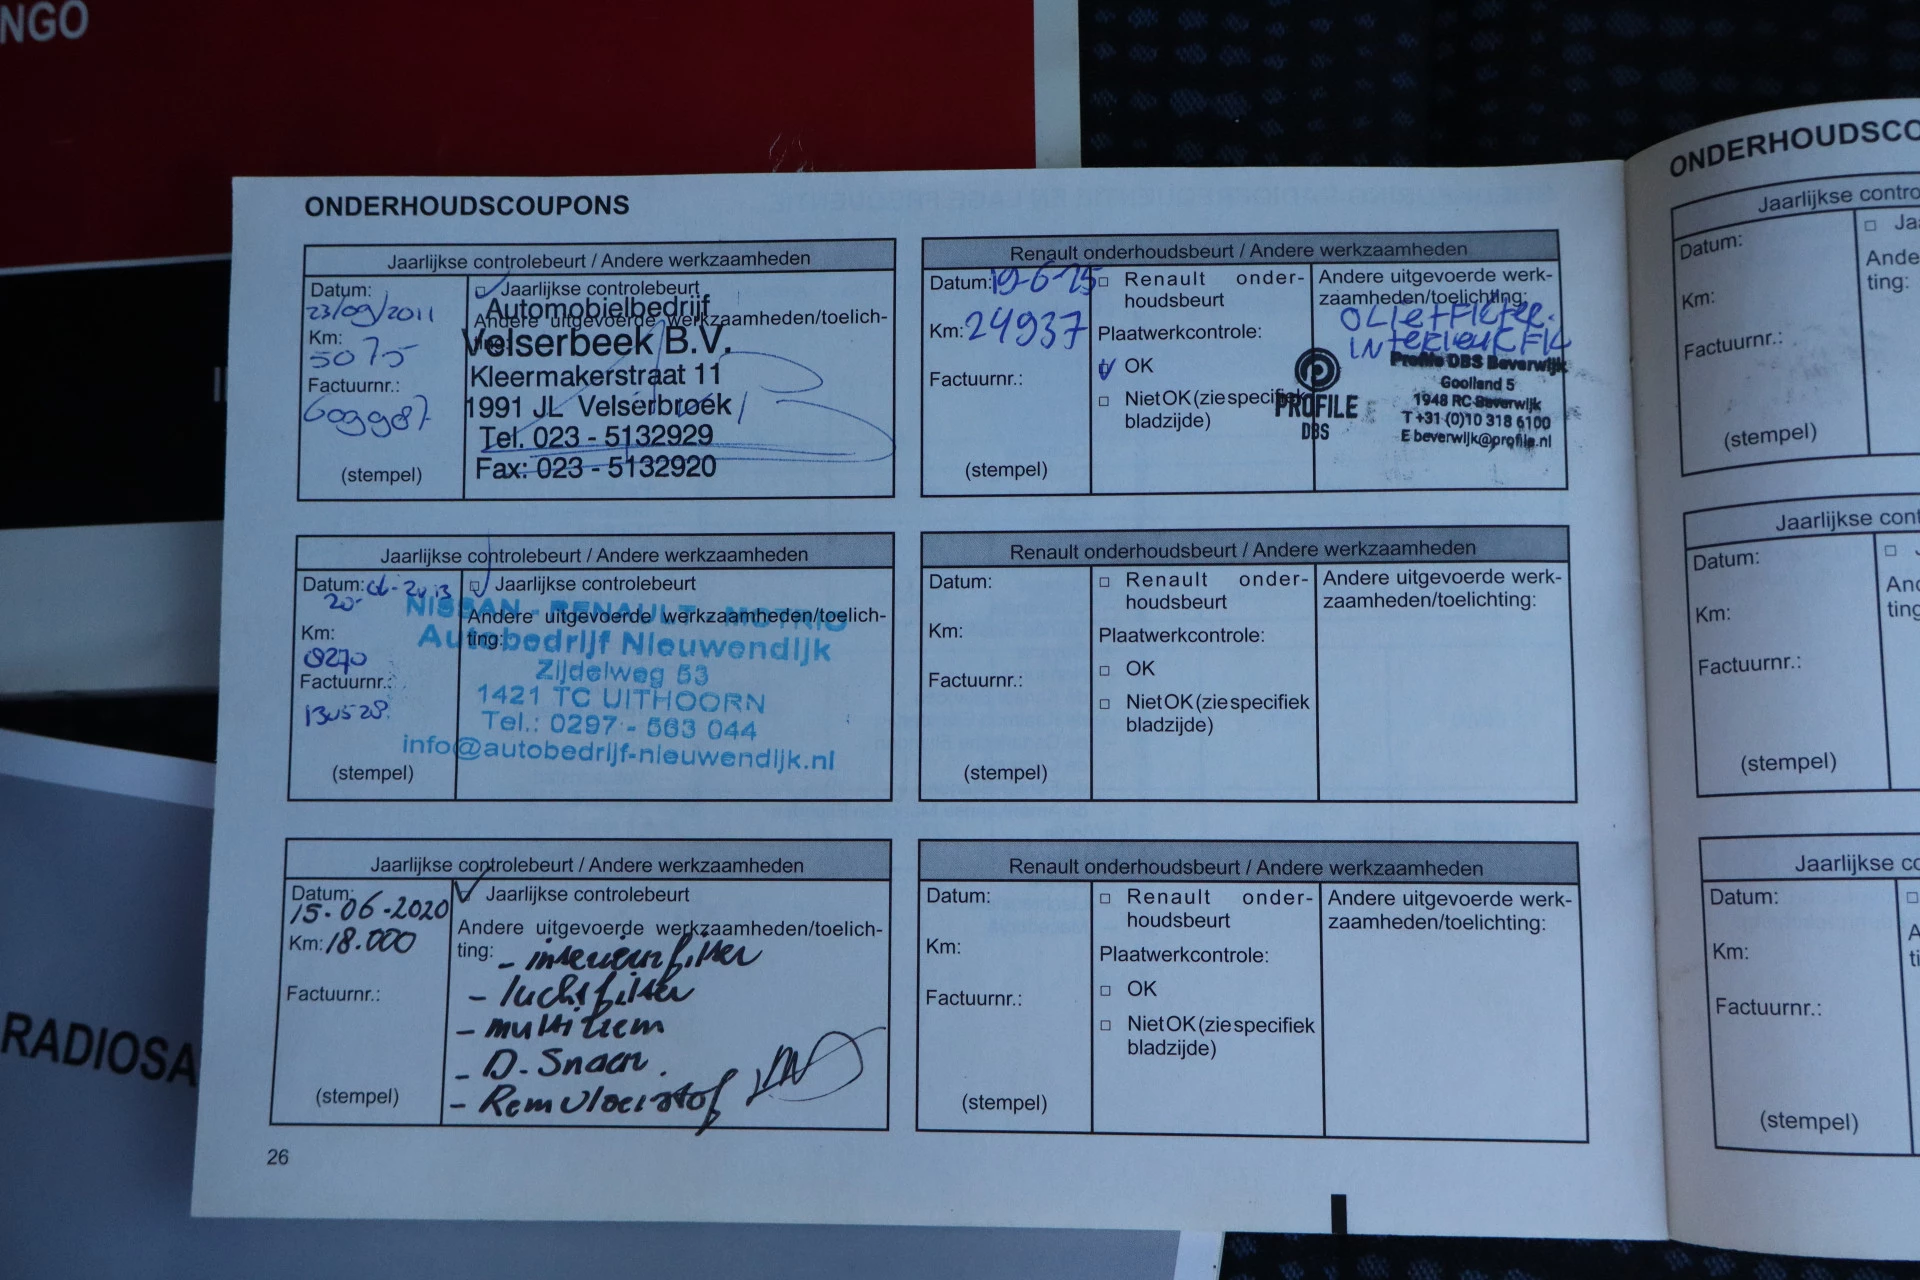 NGO
RADIOSA
ONDERHOUDSCOUPONS
Jaarlijkse controlebeurt / Andere werkzaamheden
Datum:
23/09/2011
Km:
5075
Factuurnr.:
(stempel)
Jaarlijkse controlebeurt
Andere uitgevoerde werkzaamheden/toelich-
Automobielbedrijf
Velserbeek B.V.
Kleermakerstraat 11
1991 JL Velserbroek
Tel. 023 - 5132929
Fax: 023 - 5132920
Renault onderhoudsbeurt / Andere werkzaamheden
Datum: 19-6-25
Km: 24937
Factuurnr.:
(stempel)
Renault onder-
houdsbeurt
Plaatwerkcontrole:
OK
Niet OK (zie specifiek
bladzijde)
Andere uitgevoerde werk-
zaamheden/toelichting:
OLIE+FILTER.
INTERIEURFIL
PROFILE
DBS
Profile DBS Beverwijk
Goolland 5
1948 RC Beverwijk
T +31 (0)10 318 6100
E beverwijk@profile.nl
Jaarlijkse controlebeurt / Andere werkzaamheden
Datum: 20-06-2013
Km:
8270
Factuurnr.:
(stempel)
Jaarlijkse controlebeurt
Andere uitgevoerde werkzaamheden/toelich-
ting:
NISSAN - RENAULT - MOTRIO
Autobedrijf Nieuwendijk
Zijdelweg 53
1421 TC UITHOORN
Tel.: 0297 - 563 044
info@autobedrijf-nieuwendijk.nl
Renault onderhoudsbeurt / Andere werkzaamheden
Datum:
Km:
Factuurnr.:
(stempel)
Renault onder-
houdsbeurt
Plaatwerkcontrole:
OK
Niet OK (zie specifiek
bladzijde)
Andere uitgevoerde werk-
zaamheden/toelichting:
Jaarlijkse controlebeurt / Andere werkzaamheden
Datum:
15-06-2020
Km: 18.000
Factuurnr.:
(stempel)
Jaarlijkse controlebeurt
Andere uitgevoerde werkzaamheden/toelich-
ting:
- interieurfilter
- luchtfilter
- multiriem
- D. Snaar.
- Remvloeistof
Renault onderhoudsbeurt / Andere werkzaamheden
Datum:
Km:
Factuurnr.:
(stempel)
Renault onder-
houdsbeurt
Plaatwerkcontrole:
OK
Niet OK (zie specifiek
bladzijde)
Andere uitgevoerde werk-
zaamheden/toelichting:
26
ONDERHOUDSCO
Jaarlijkse contro
Datum:
Km:
Factuurnr.:
(stempel)
Ja
Ande
ting:
Jaarlijkse cont
Datum:
Km:
Factuurnr.:
(stempel)
J
And
ting
Jaarlijkse co
Datum:
Km:
Factuurnr.:
(stempel)
A
ti